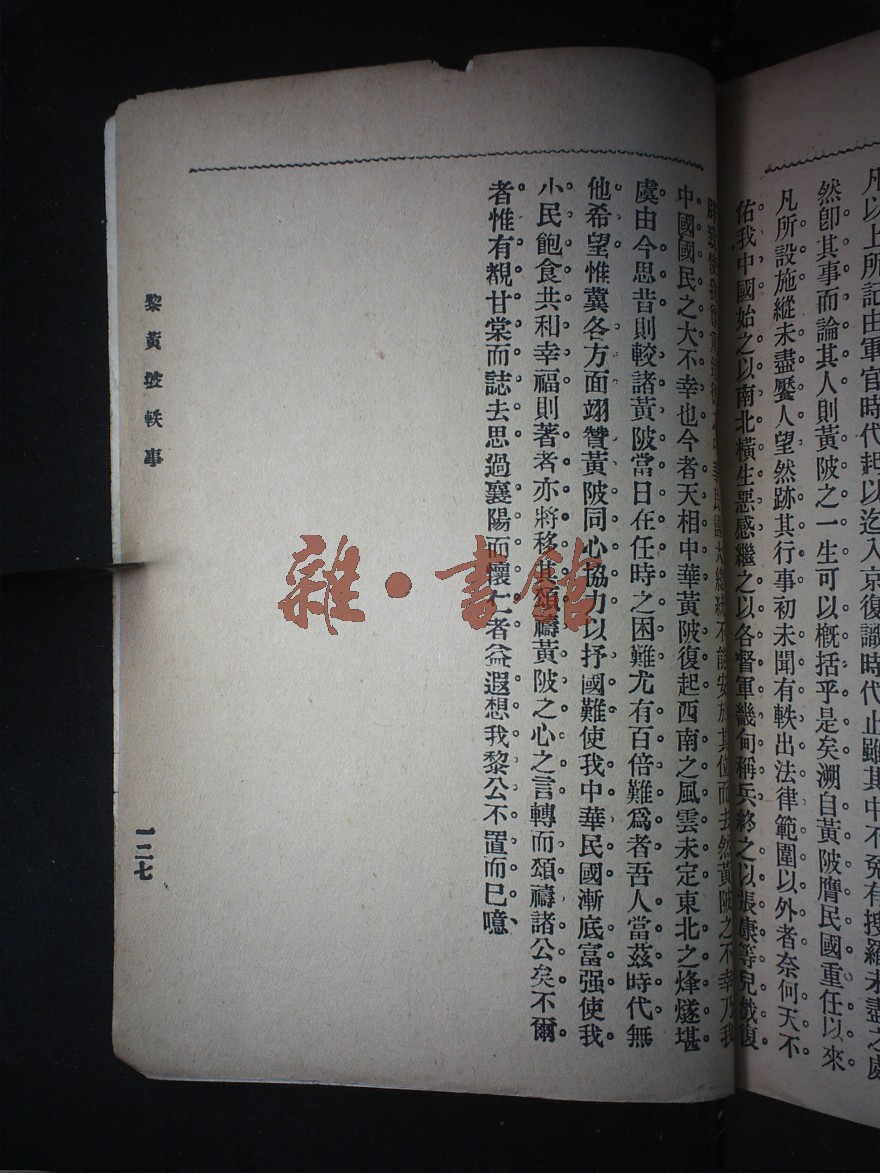 凡以上所記由軍官時代起以迄入京復識時代止雖其中不免有搜羅未盡之處
然卽其事而論其人則黃陂之一生可以概括乎是矣溯自黃陂膺民國重任以來
凡所設施縱未盡饜人望然跡其行事初未聞有軼出法律範圍以外者奈何天不
佑我中國始之以南北橫生惡感繼之以各督軍畿甸稱兵終之以張康等兒戲復
辟致使我 民國大總統不能安於其位而去然黃陂之不幸乃我
中國國民之大不幸也今者天相中華黃陂復起西南之風雲未定東北之烽燧堪
虞由今思昔則較諸黃陂當日在任時之困難尤有百倍難爲者吾人當茲時代無
他希望惟冀各方面翊贊黃陂同心協力以抒國難使我中華民國漸底富强使我
小民飽食共和幸福則著者亦將移其頌禱黃陂之心之言轉而頌禱諸公矣不爾
者惟有覩甘棠而誌去思過襄陽而懷仁者益遐想我黎公不置而已噫
黎黃陂軼事
一二七
雜·書館